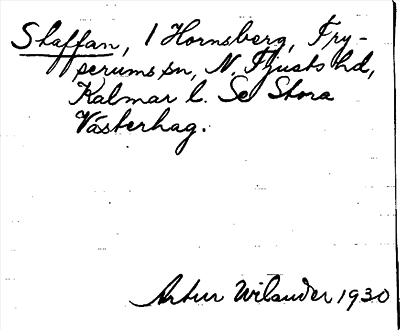 Staffan, 1 Hornsberg, Try-
serums sn, N. Tjusts hd,
Kalmar l. Se Stora
Västerhag.
Artur Wilander 1930